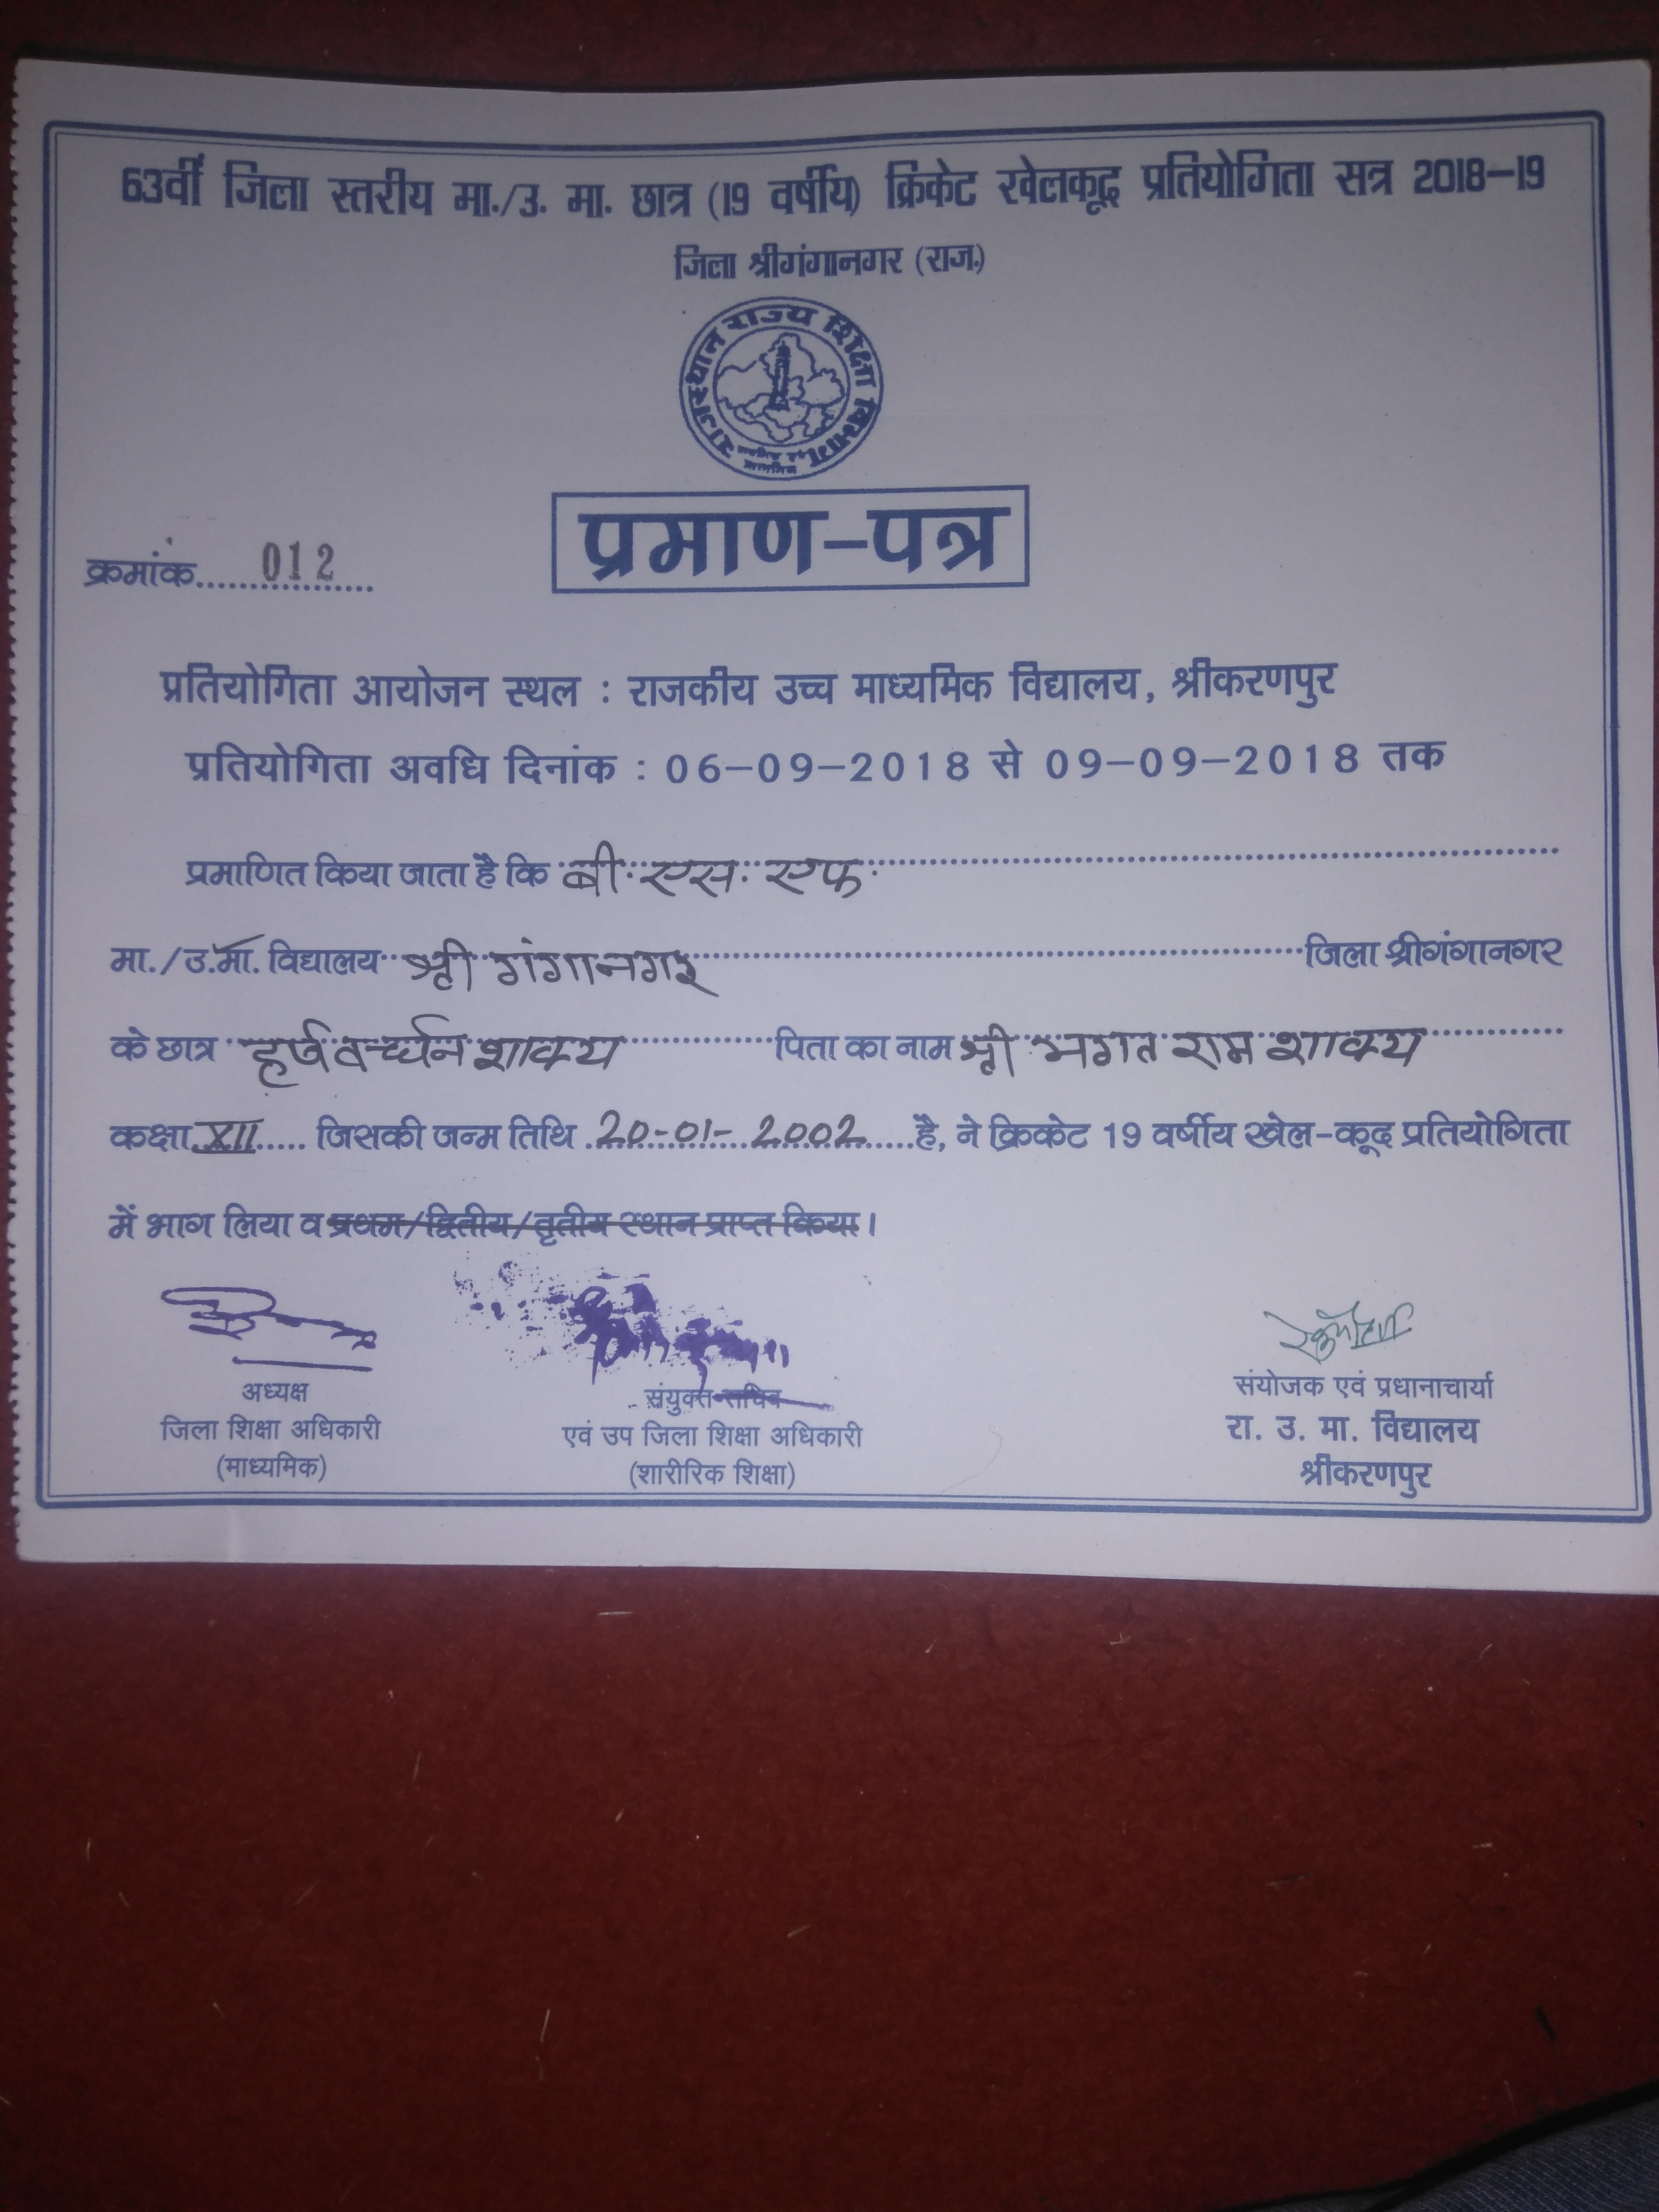 63वीं जिला स्तरीय मा./उ. मा. छात्र (19 वर्षीय) क्रिकेट खेलकूद प्रतियोगिता सत्र 2018-19
जिला श्रीगंगानगर (राज.)
राजस्थान राज्य शिक्षा विभाग
प्रमाण-पत्र
क्रमांक......012......
प्रतियोगिता आयोजन स्थल : राजकीय उच्च माध्यमिक विद्यालय, श्रीकरणपुर
प्रतियोगिता अवधि दिनांक : 06-09-2018 से 09-09-2018 तक
प्रमाणित किया जाता है कि बी. एस. एफ.
मा./उ.मा. विद्यालय श्री गंगानगर जिला श्रीगंगानगर
के छात्र हर्षवर्धन शाक्य पिता का नाम श्री भगत राम शाक्य
कक्षा XII जिसकी जन्म तिथि 20-01-2002 है, ने क्रिकेट 19 वर्षीय खेल-कूद प्रतियोगिता
में भाग लिया व प्रथम/द्वितीय/तृतीय स्थान प्राप्त किया।
अध्यक्ष
जिला शिक्षा अधिकारी
(माध्यमिक)
संयुक्त सचिव
एवं उप जिला शिक्षा अधिकारी
(शारीरिक शिक्षा)
संयोजक एवं प्रधानाचार्या
रा. उ. मा. विद्यालय
श्रीकरणपुर